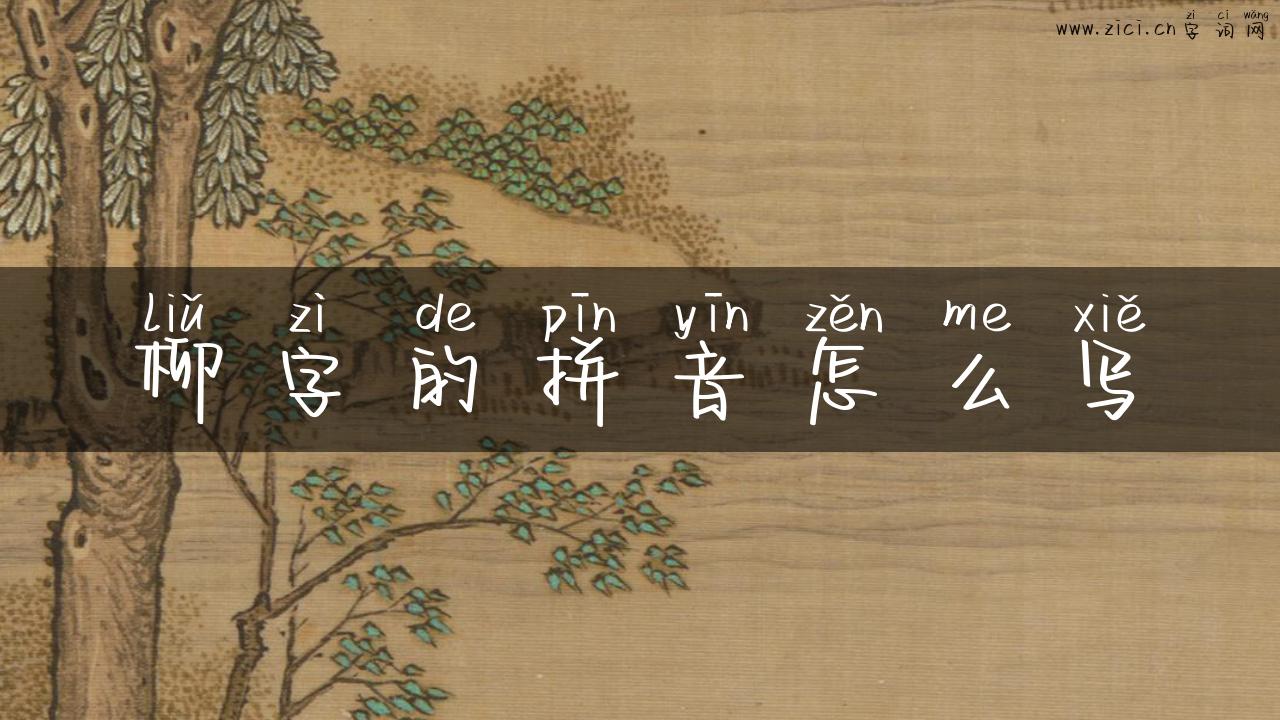 zì cí wǎng
www.zici.cn 字词网
liǔ zì de pīn yīn zěn me xiě
柳字的拼音怎么写